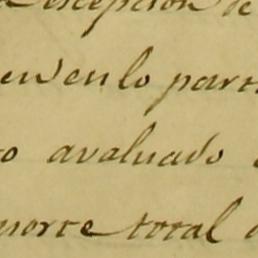 excepcion de
en lo part
o avaluado
porte total d